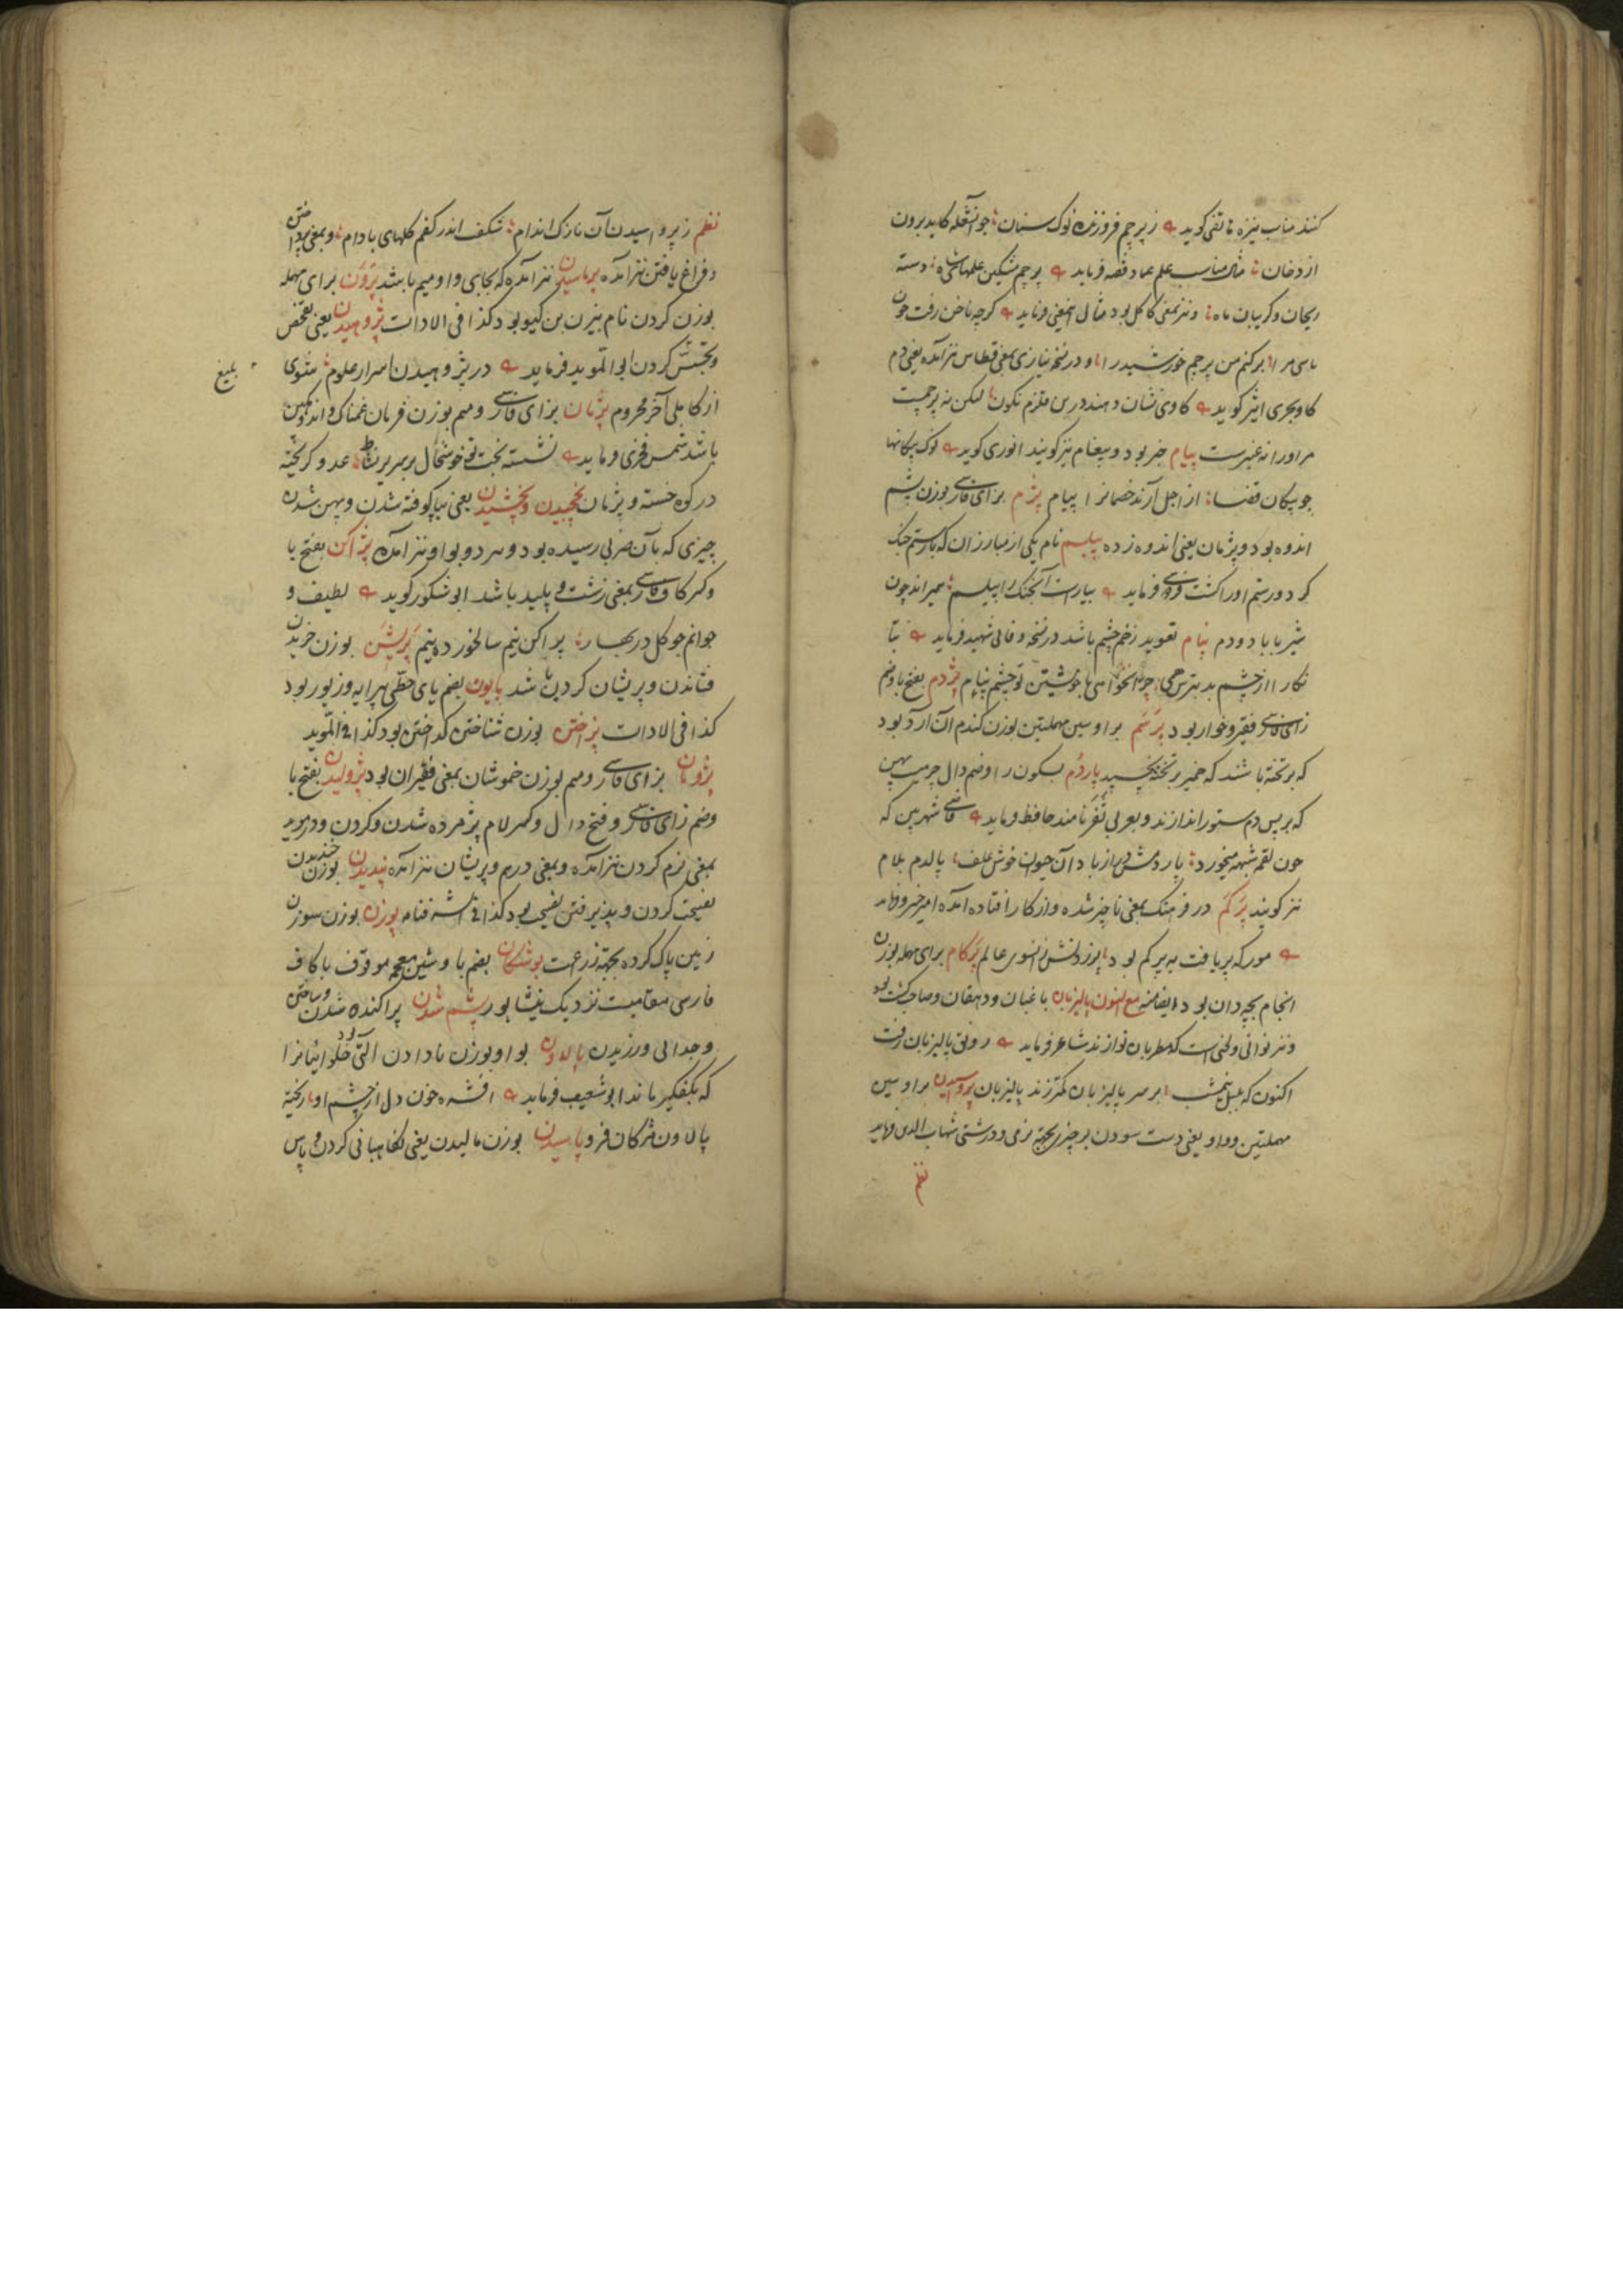 کنند مناسب نیزه هاتفی کوید زپرچم فروزنده نوک سنان جو آتشعله کاید برون
از دخان مثال مناسب علم عماد فقیه فرماید پرچم مشکین علمهای شاه دسته
ریحان و کریبان ماه و نیز بمعنی کاکل بود مثال اینمعنی فرماید کرچه ناخن رفت چون
پرچم خورشید را و در نسخه نیازی بمعنی قطاس نیز آمده یعنی دم
کاو بحری اثیر کوید کاوی نشان دهند درین قلزم نکون لیکن نه پرچمست
مر اورا نه عنبرست پیام خبر بود و پیغام نیز کویند انوری کوید نوک پیکانها
جو پیکان قضا از اجل آرند خصمانرا پیام پژم بزای فارسی بوزن پشم
اندوه بود و پژمان یعنی اندوه زده پیلسم نام یکی از مبارزان که با رستم جنک
کرد و رستم اورا کشت فردوسی فرماید بیاراست آن جنک را پیلسم همیراند چون
شیر با باد و دم پنام تعویذ زخم چشم باشد در نسخه وفائی شهید فرماید بتا
نکارا از چشم بد بترس همی چرا نخواهی با خویشتن تو چشم پنام پژدم بفتح با و ضم
زای فارسی فقیر و خوار بود پرسم برا و سین مهملتین بوزن کندم آن آرد بود
که بر تخته باشند که خمیر بر تخته نچسپد پاردم بسکون را و ضم دال چرمیست پهن
که بر پس دم ستور اندازند و بعربی ثفر نامند حافظ فرماید شهر بین که
چون لقمه شبهه میخورد پاردمش دراز باد آن حیوان خوش علف پالدم بلام
نیز کویند پرکم در فرهنک بمعنی ناچیز شده و از کار افتاده آمده امیر خسرو فرماید
مور که پر یافت نه پرکم بود پرزدنش زانسوی عالم پرکام برای مهمله بوزن
انجام بچه دان بود مع النون پالیزبان باغبان و دهقان و صاحب کشت بود
و نیز نوائی و لحنی است که مطربان نوازند شاعر فرماید رونق پالیزبان رفت
اکنون که بلبل نیمشب بر سر پالیزبان کمتر زند پالیزبان پرواسیدن برا و سین
مهملتین و واو یعنی دست سودن بر چیزی بجهة نرمی و درشتی شهاب الدین فرماید
نظم
نظم زپرواسیدن آن نازک اندام شکفت اندر کفم کلهای بادام و بمعنی پرداختن
و فراغ یافتن نیز آمده برماسیدن نیز آمده که بجای واو میم باشد پرون برای مهمله
بوزن کردن نام بیژن بن کیو بود کذا فی الادات پژوهیدن یعنی تفحص
و تجسس کردن ابو المؤید فرماید در پژوهیدن اسرار علوم مثنوی
بلیغ
از کاملی آخر محروم پژمان بزای فارسی و میم بوزن فرمان غمناک و اندوهکین
باشد شمس فخری فرماید نشسته بخت تو خوشحال بر سریر نشاط عدو کریخته
در کوه خسته و پژمان پخچیدن و پخشیدن یعنی بپا کوفته شدن و پهن شدن
چیزی که بآن ضربی رسیده بود و هر دو بواو نیز آمده پژاکن بفتح با
و کسر کاف فارسی بمعنی زشت و پلید باشد ابو شکور کوید لطیف و
جوانم جو کل در بهار پژاکن نیم سالخورده نیم پریشن بوزن خریدن
فشاندن و پریشان کردن باشد پایون بضم یای حطی پیرایه و زیور بود
کذا فی الادات پزاختن بوزن شناختن کداختن بود کذا فی المؤید
پژومان بزای فارسی و میم بوزن خموشان بمعنی فقیران بود پژولیدن بفتح با
و ضم زای فارسی و فتح دال و کسر لام پژمرده شدن و کردن و در مؤید
بمعنی نرم کردن نیز آمده و بمعنی درهم و پریشان نیز آمده پندیدن بوزن خندیدن
نصیحت کردن و پذیرفتن نصیحت بود کذا فی شرفنامه پوزن بوزن سوزن
زمین پاک کرده بجهة زراعت پوشکان بضم با و شین معجمه موقوف با کاف
فارسی مقامیست نزدیک نیشابور پشم شدن پراکنده شدن
و جدائی ورزیدن پالاون بواو بوزن نادادن آلتی بود حلوائیانرا
که بکفکیر ماند ابو شعیب فرماید افشره خون دل از چشم او ریخته
پالاون مژکان فرو پاسیدن بوزن مالیدن یعنی نکاهبانی کردن و پاس